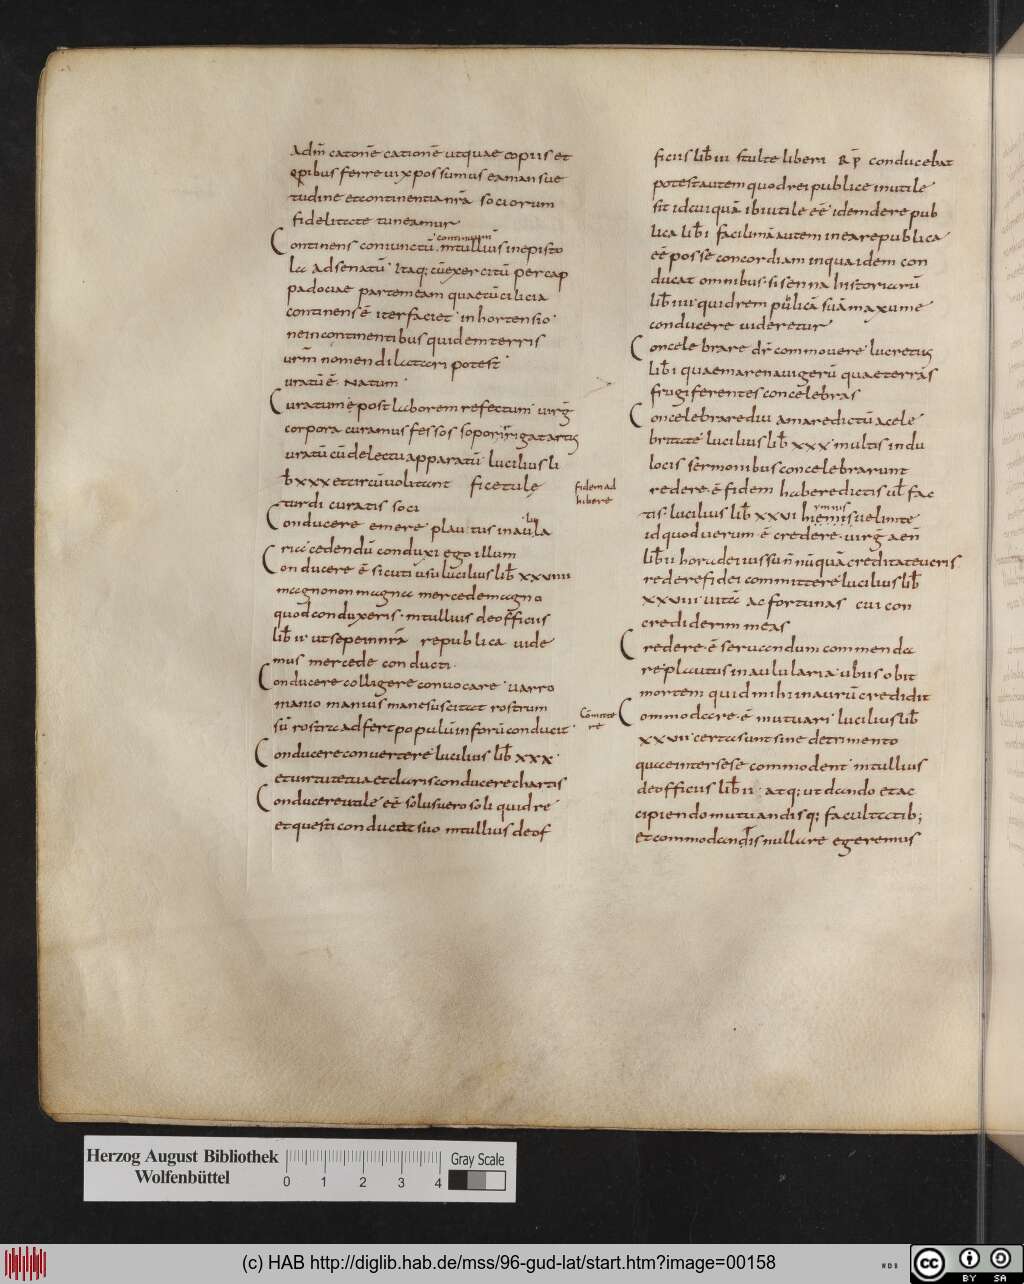 Adm̄ catonē cationē utquae copiis et
opibus ferre uix possumus ea mansue
tudine et continentia nr̄a sociorum
fidelitate tuneamur
continuum
Continens coniunctū mtullius inepisto
la adsenatū Itaq; cū exercitū per cap
padociae partem eam quae cū cilicia
continens ē iter faciet in hortensio
ne in continentibus quidem terris
urm̄ nomen dilatari potest
uratū ē Natum
Curatum ē post laborem refectum uirg̅
corpora curamus fessos sopor irrigat artus
uratū cū delectu apparatū lucilius li
b̄ xxx et circū uolitant ficetule
turdi curatis soci
Conducere emere plautus in aula
lu
ria cedendū conduxi ego illum
Conducere ē sicuti usu lucilius lib̄ xxviiii
magno non magna mercede magno
quod conduxeris mtullius de officiis
lib̄ ii ut sepe in nr̄a republica uide
mus mercede conducti
Conducere colligere conuocare uarro
manio manius mane suscitat rostrum
sū rostra adfert populū in forū conducit
Conducere conuertere lucilius lib̄ xxx
et uirtute tua et claris conducere chartis
Conducere utile eē solus uero soli quid re
et questi conducat suo mtullius de of
fidem ad
hibere
Cōmitte
re
ficiis lib̄ iii stulte liberi R p̄ conducebat
potest autem quod rei publice inutile
sit id cuiquā ibi utile eē idem de re pub
lica lib̄ i facilimā autem in ea re publica
eē posse concordiam in qua idem con
ducat omnibus sisenna historiarū
lib̄ iiii quid rem pūlicā suā maxume
conducere uideretur
Concelebrare dr̄ commouere lucretus
lib̄ i quae mare nauigerū quae terrās
frugiferentes concelebras
Concelebrare diu a maredictū a cele
britate lucilius lib̄ xxx multis indu
locis sermonibus concelebrarunt
redere ē fidem habere dictis ul̄ fac
tis lucilius lib̄ xxvi hiemis uelinte
ymnis
id quod uerum ē credere uirg̅ aen̄
lib̄ ii hora dei iussu n̄ nūquā creditateucris
redere fidei committere lucilius lib̄
xxviii uitā ac fortunas cui con
crediderim meas
Credere ē seruandum commenda
re plautus in aulularia ubi is obit
mortem quid mihi in aurū credidit
Commodare ē mutuari lucilius lib̄
xxvii certa sunt sine detrimento
quae inter sese commodent mtullius
de officiis lib̄ ii atq; ut dando et ac
cipiendo mutuandisq; facultatib;
et commodandis nulla re egeremus
Herzog August Bibliothek
Wolfenbüttel
0 1 2 3 4
Gray Scale
(c) HAB http://diglib.hab.de/mss/96-gud-lat/start.htm?image=00158
WDB
cc BY SA